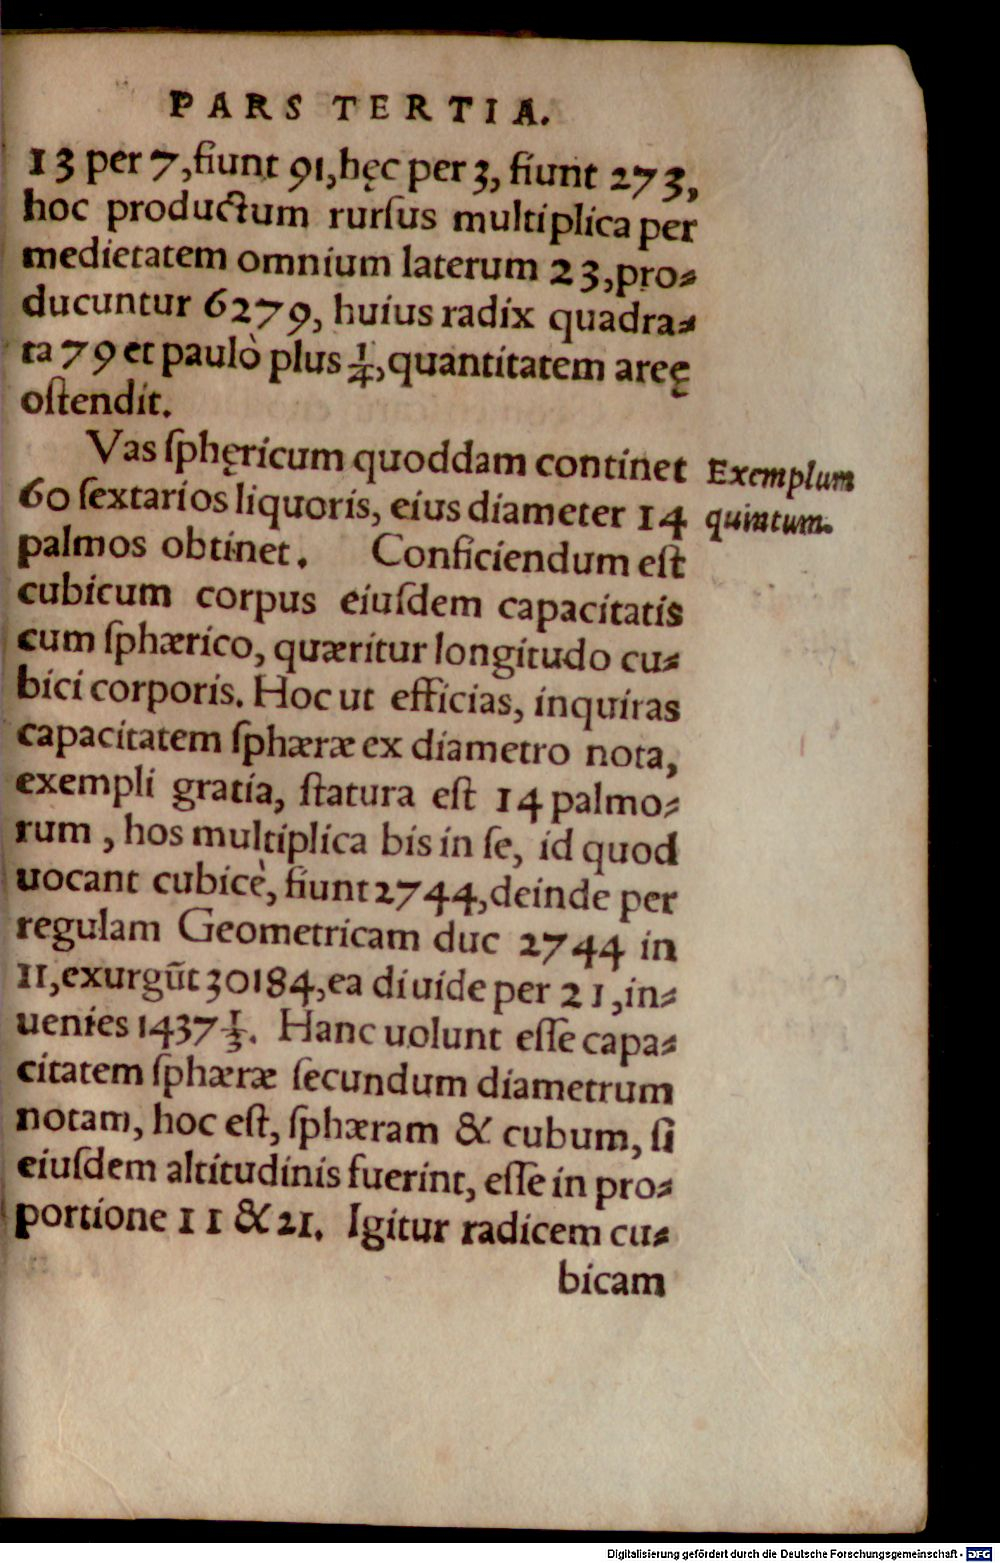 PARS TERTIA.
13 per 7, fiunt 91, hęc per 3, fiunt 273,
hoc productum rurſus multiplica per
medietatem omnium laterum 23, pro⸗
ducuntur 6279, huius radix quadra⸗
ta 79 et paulò plus 1/4, quantitatem areę
oſtendit.
Vas ſphęricum quoddam continet
Exemplum
60 ſextarios liquoris, eius diameter 14
quintum.
palmos obtinet. Conficiendum eſt
cubicum corpus eiuſdem capacitatis
cum ſphærico, quæritur longitudo cu⸗
bici corporis. Hoc ut efficias, inquiras
capacitatem ſphæræ ex diametro nota,
exempli gratia, ſtatura eſt 14 palmo⸗
rum, hos multiplica bis in ſe, id quod
uocant cubicè, fiunt 2744, deinde per
regulam Geometricam duc 2744 in
11, exurgūt 30184, ea diuide per 21, in⸗
uenies 1437 1/3. Hanc uolunt eſſe capa⸗
citatem ſphæræ ſecundum diametrum
notam, hoc eſt, ſphæram & cubum, ſi
eiuſdem altitudinis fuerint, eſſe in pro⸗
portione 11 & 21. Igitur radicem cu⸗
bicam
Digitalisierung gefördert durch die Deutsche Forschungsgemeinschaft - DFG